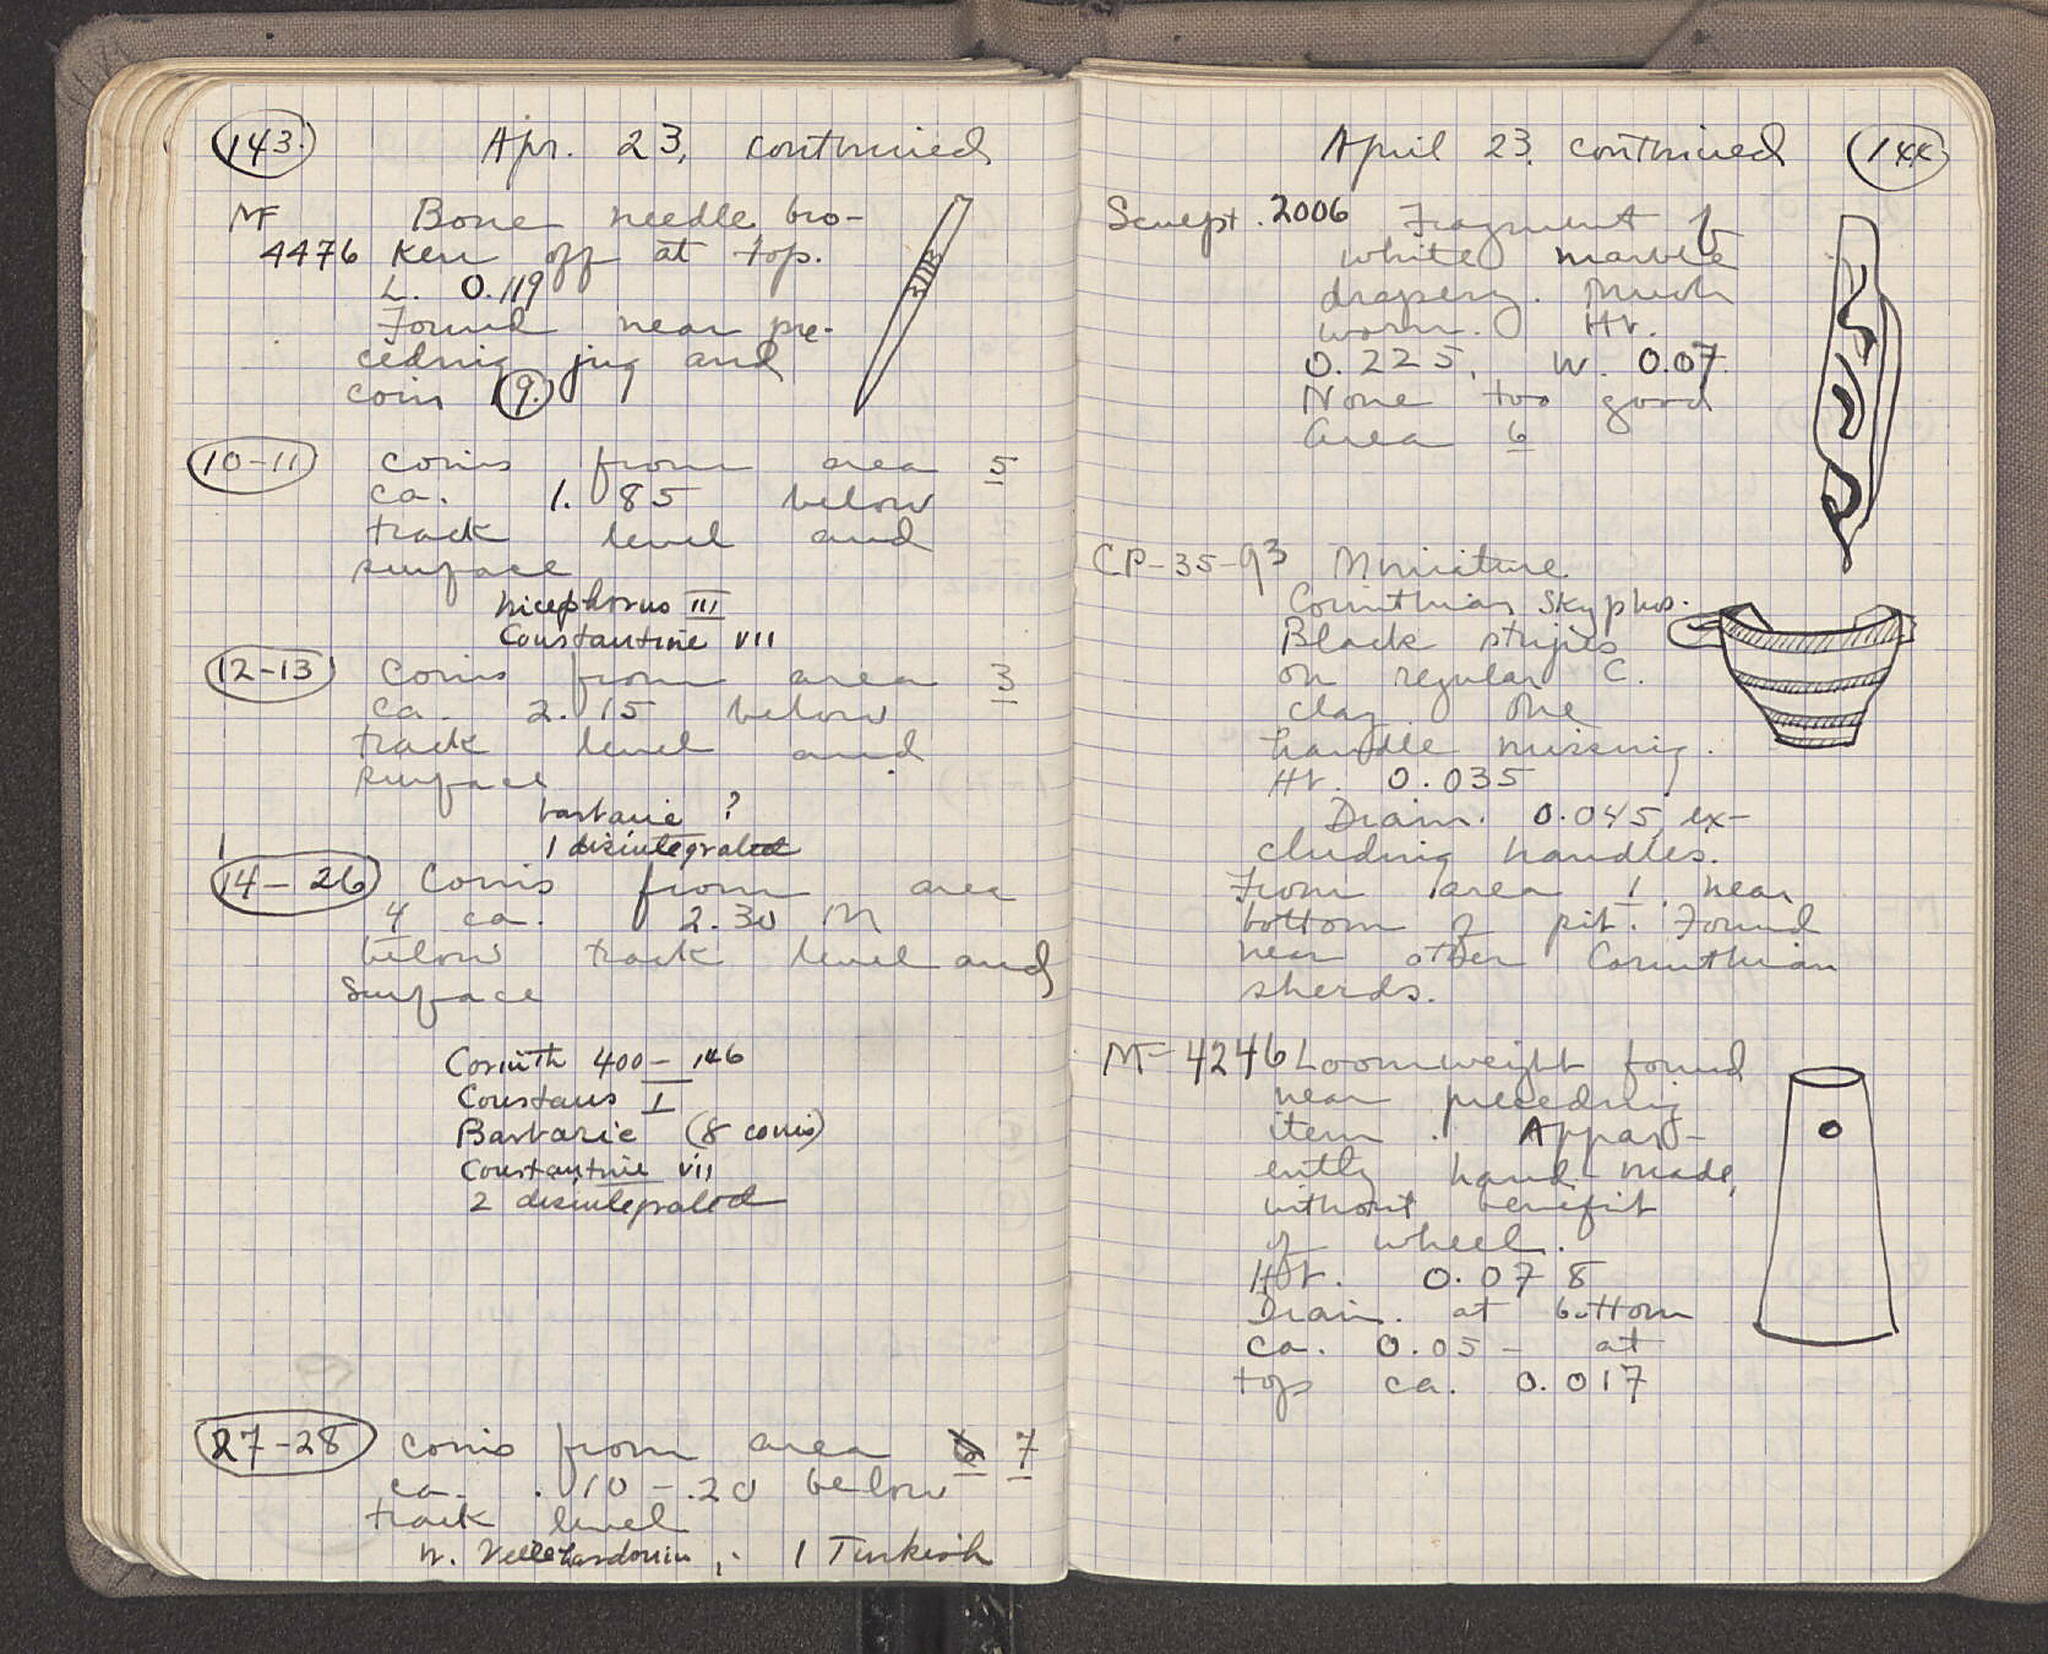 143.
Apr. 23, continued
MF
4476
Bone needle bro-
ken off at top.
L. 0.119
Found near pre-
ceding jug and
coin 9.
10-11 coins from area 5
ca. 1.85 below
track level and
surface
Nicephorus III
Constantine VII
12-13 coins from area 3
ca. 2.15 below
track level and
surface
barbaric ?
1 disintegrated
14-26 Coins from area
4 ca. 2.30 m
below track level and
surface
Corinth 400-146
Constans I
Barbaric (8 coins)
Constantine VII
2 disintegrated
27-28 coins from area 6 7
ca. .10-.20 below
track level
W. Villehardouin, 1 Turkish
April 23, continued 144
Sculpt. 2006 Fragment of
white marble
drapery. Much
worn. Ht.
0.225, W. 0.07.
None too good
Area 6
CP-35-93 Miniature
Corinthian Skyphos.
Black stripes
on regular C.
clay. One
handle missing.
Ht. 0.035
Diam. 0.045, ex-
cluding handles.
From area 1 near
bottom of pit. Found
near other Corinthian
sherds.
MF-4246 Loomweight found
near preceding
item. Appar-
ently hand-made,
without benefit
of wheel.
Ht. 0.078
Diam. at bottom
ca. 0.05 - at
top ca. 0.017